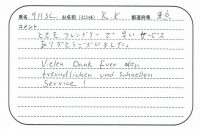 お名前(イニシャル) K.K 都道府県 東京
コメント
とてもフレンドリーで早いサービス
ありがとうございました。
Vielen Dank Fuer den
freundlichen und schnellen
Service!